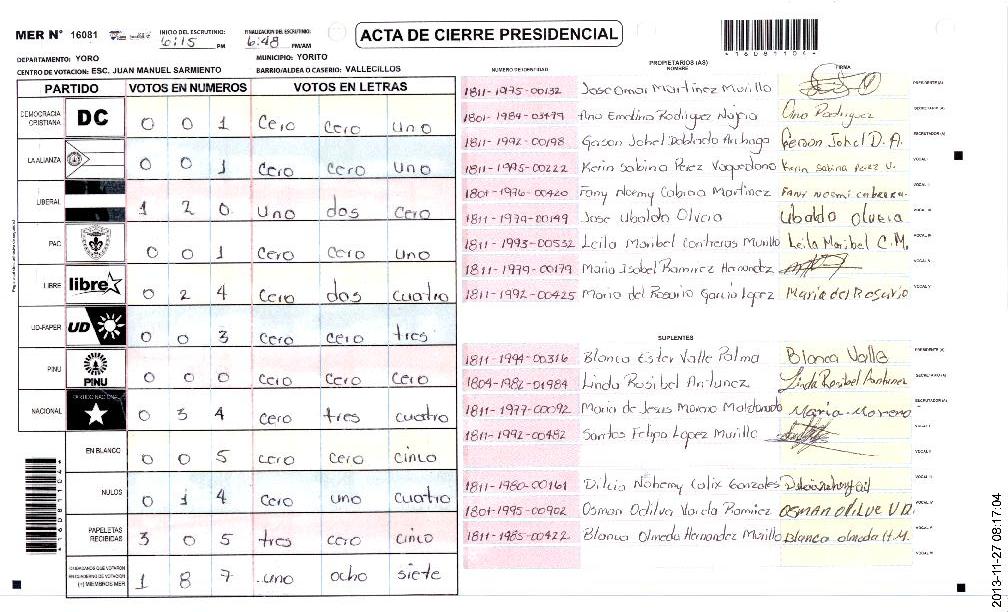 MER N° 16081 INICIO DEL ESCRUTINIO: 6:15 PM FINALIZACION DEL ESCRUTINIO: 6:48 PM/AM
ACTA DE CIERRE PRESIDENCIAL
DEPARTAMENTO: YORO MUNICIPIO: YORITO
CENTRO DE VOTACION: ESC. JUAN MANUEL SARMIENTO BARRIO/ALDEA O CASERIO: VALLECILLOS
PARTIDO VOTOS EN NUMEROS VOTOS EN LETRAS
DEMOCRACIA CRISTIANA DC 0 0 1 Cero Cero uno
LA ALIANZA 0 0 1 Cero cero uno
LIBERAL 1 2 0 uno dos Cero
PAC 0 0 1 Cero Cero uno
LIBRE libre 0 2 4 Cero dos cuatro
UD-FAPER UD 0 0 3 cero cero tres
PINU PINU 0 0 0 cero cero cero
NACIONAL PARTIDO NACIONAL 0 3 4 cero tres cuatro
EN BLANCO 0 0 5 cero cero cinco
NULOS 0 1 4 cero uno cuatro
PAPELETAS RECIBIDAS 3 0 5 tres cero cinco
CIUDADANOS QUE VOTARON EN CUADERNO DE VOTACION (+) MIEMBROS MER 1 8 7 uno ocho siete
4160811041
PROPIETARIOS (AS)
NUMERO DE IDENTIDAD NOMBRE FIRMA
1811-1975-00132 Jose Omar Martinez Murillo PRESIDENTE (A)
1801-1984-03479 Ana Emelina Rodriguez Najera Ana Rodriguez SECRETARIO (A)
1811-1992-00198 Gerson Johel Doblado Archaga Gerson Johel D. A. ESCRUTADOR (A)
1811-1995-00222 Kerin Sabina Perez Vaquedano Kerin Sabina Perez V. VOCAL I
1801-1976-00420 Fany Noemy Cabrera Martinez Fany noemi cabrera. VOCAL II
1811-1979-00149 Jose Ubaldo Olvera Ubaldo olvera VOCAL III
1811-1993-00532 Leila Maribel Contreras Murillo Leila Maribel C.M. VOCAL IV
1811-1979-00179 Maria Isabel Ramirez Hernandez VOCAL V
1811-1992-00425 Maria del Rosario Garcia Lopez Maria del Rosario VOCAL VI
SUPLENTES
1811-1994-00316 Blanca Ester Valle Palma Blanca Valle PRESIDENTE (A)
1804-1982-01984 Linda Rosibel Antunez Linda Rosibel Antunez SECRETARIO (A)
1811-1977-00092 Maria de Jesus Moreno Maldonado Maria-Moreno ESCRUTADOR (A)
1811-1992-00482 Santos Felipa Lopez Murillo VOCAL I
VOCAL II
1811-1980-00161 Dilcia Nohemy Calix Gonzales VOCAL III
1801-1995-00902 Osman Odilva Varela Ramirez VOCAL IV
1811-1985-00422 Blanca Olmeda Hernandez Murillo Blanca olmeda H.M. VOCAL V
VOCAL VI
2013-11-27 08:17:04